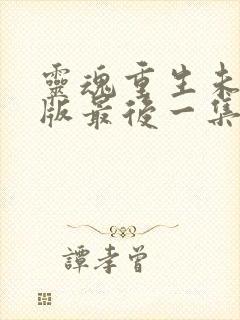 靈魂重生未
版最後一集
譚孝曾